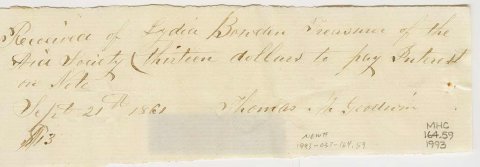 Received of Lydia Bowden Treasurer of the
Aid Society thirteen dollars to pay Interest
on Note
Sept 21th 1861 Thomas M Goodwin
$13
NEWH
1993-037-164.59
MHC
164.59
1993